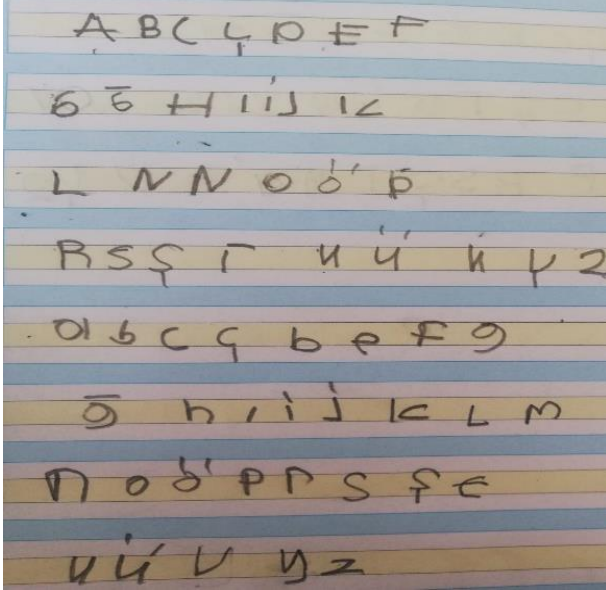 A B C Ç D E F
G Ğ H I İ J K
L N N O Ö P
R S Ş T U Ü V Y Z
a b c ç b e f g
ğ h ı i j k L m
n o ö p r s ş t
u ü v y z